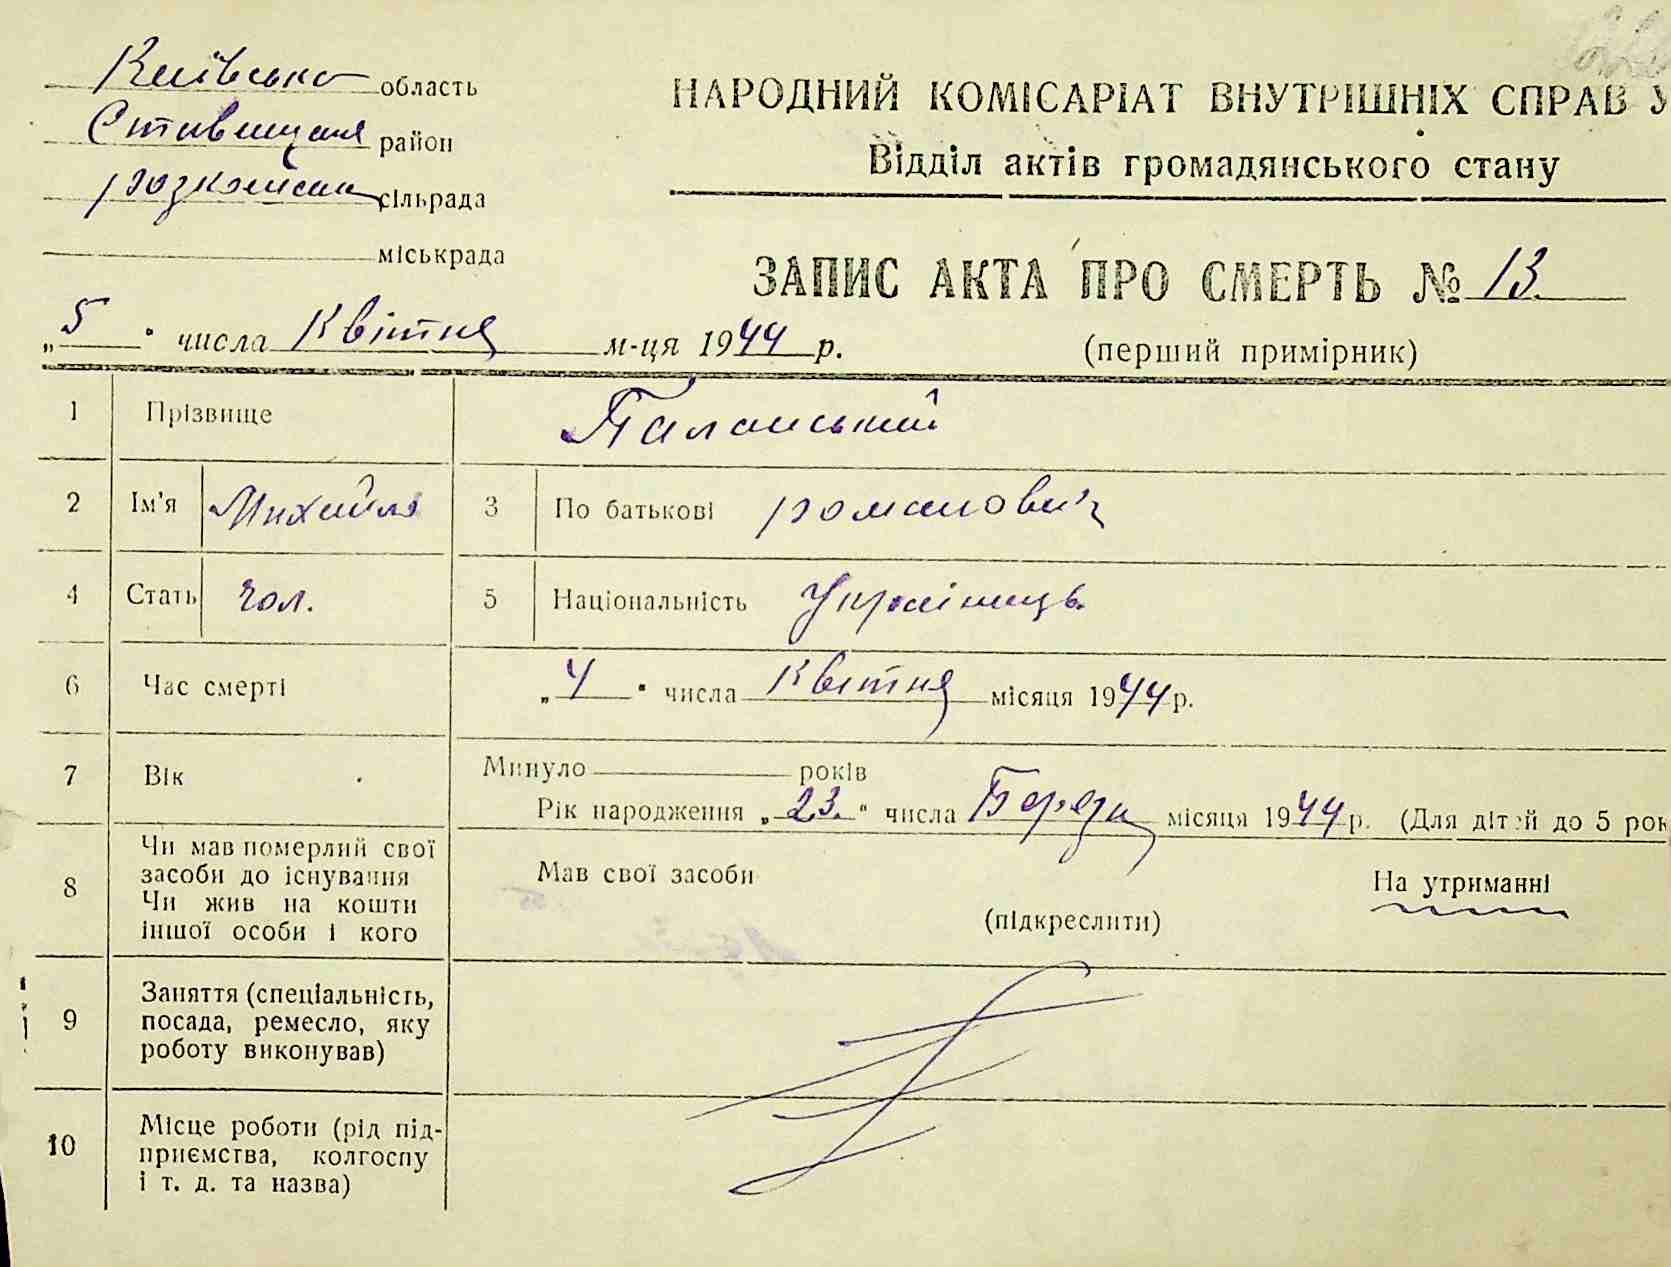 Київсько область
Ставищан район
розкошан сільрада
міськрада
НАРОДНИЙ КОМІСАРІАТ ВНУТРІШНІХ СПРАВ У
Відділ актів громадянського стану
ЗАПИС АКТА ПРО СМЕРТЬ № 13.
(перший примірник)
„5" числа Квітня м-ця 1944 р.
1 Прізвище Паланський
2 Ім'я Михайло 3 По батькові романович
4 Стать чол. 5 Національність Українець.
6 Час смерті „4" числа Квітня місяця 1944 р.
7 Вік Минуло років
Рік народження „23." числа Березн місяця 1944 р. (Для дітей до 5 рок
8 Чи мав померлий свої
засоби до існування
Чи жив на кошти
іншої особи і кого
Мав свої засоби На утриманні
(підкреслити)
9 Заняття (спеціальність,
посада, ремесло, яку
роботу виконував)
10 Місце роботи (рід під-
приємства, колгоспу
і т. д. та назва)